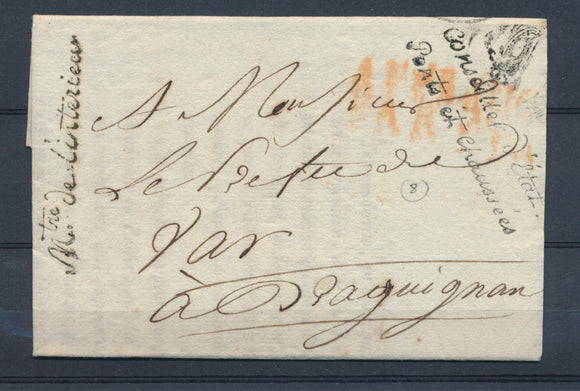 Mtre de l'intérieur
Conseiller d'état.
Ponts et Chaussées
A Monsieur
Le Préfet du
Var
à Draguignan
8